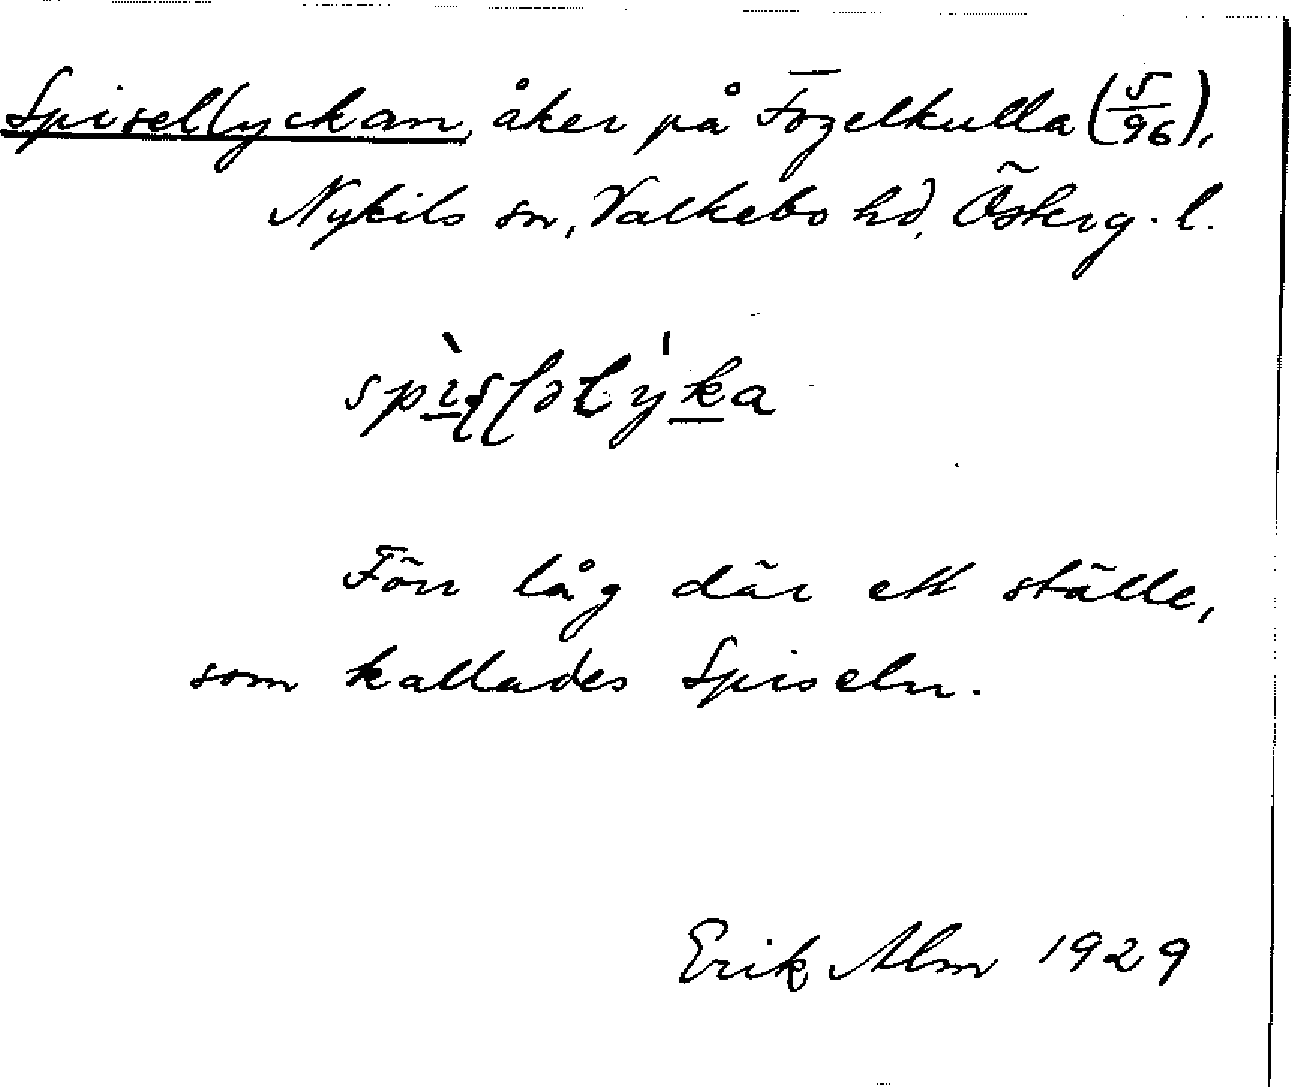 Spisellyckan, åker på Fogelkulla (5/96),
Nykils sn, Valkebo hd, Österg. l.
Förr låg där ett ställe,
som kallades Spiseln.
Erik Alm 1929